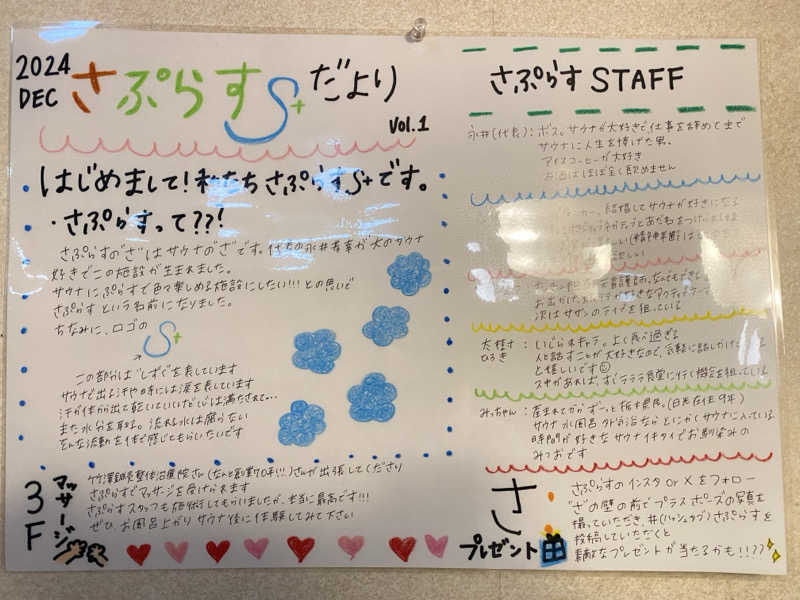 2024
DEC
さぷらすS+だより
Vol.1
はじめまして!私たちさぷらすS+です。
・さぷらすって??!
さぷらすの"さ"はサウナの"さ"です。代表の永井が大のサウナ
好きでこの施設が生まれました。
サウナにぷらすで色々楽しめる施設にしたい!!!との思いで
さぷらすという名前になりました。
ちなみに、ロゴの
S+
この部分は"しずく"を表しています
サウナで出る汗や時には涙を表しています
汗が体から出て乾いていくけど心は満たされて…
また水分を取る。流れる水は腐らない
そんな流動を体で感じてもらいたいです
3F
マッサージ
竹澤鍼灸整体治療院さん(なんと創業70年!!!)さんが出張してくださり
さぷらすでマッサージを受けられます
さぷらすスタッフも施術してもらいましたが、本当に最高です!!!
ぜひ、お風呂上がり サウナ後に体験してみて下さい
さぷらす STAFF
永井(代表):ボス。サウナが大好きで仕事を辞めてまで
サウナに人生を捧げた男。
アイスコーヒーが大好き
お酒はほぼ全く飲めません
結婚してサウナが好きになる
次はサザンのライブを狙っている
大柱
ひろき
:いじられキャラ。よく食べ過ぎる
人と話すことが大好きなので、気軽に話しかけて
と嬉しいです
スキがあれば、すぐテラテラ食堂に行く機会を狙っている
みっちゃん:産まれてからずーっと栃木県民。(日光在住9年)
サウナ 水風呂 外気浴ならとにかくサウナに入っている
時間が好きな サウナイキタイでお馴染みの
みつおです
さ
プレゼント
さぷらすのインスタ or Xをフォロー
"さ"の壁の前でプラスポーズの写真を
撮っていただき、#(ハッシュタグ)さぷらすを
投稿していただくと
素敵なプレゼントが当たるかも!!??